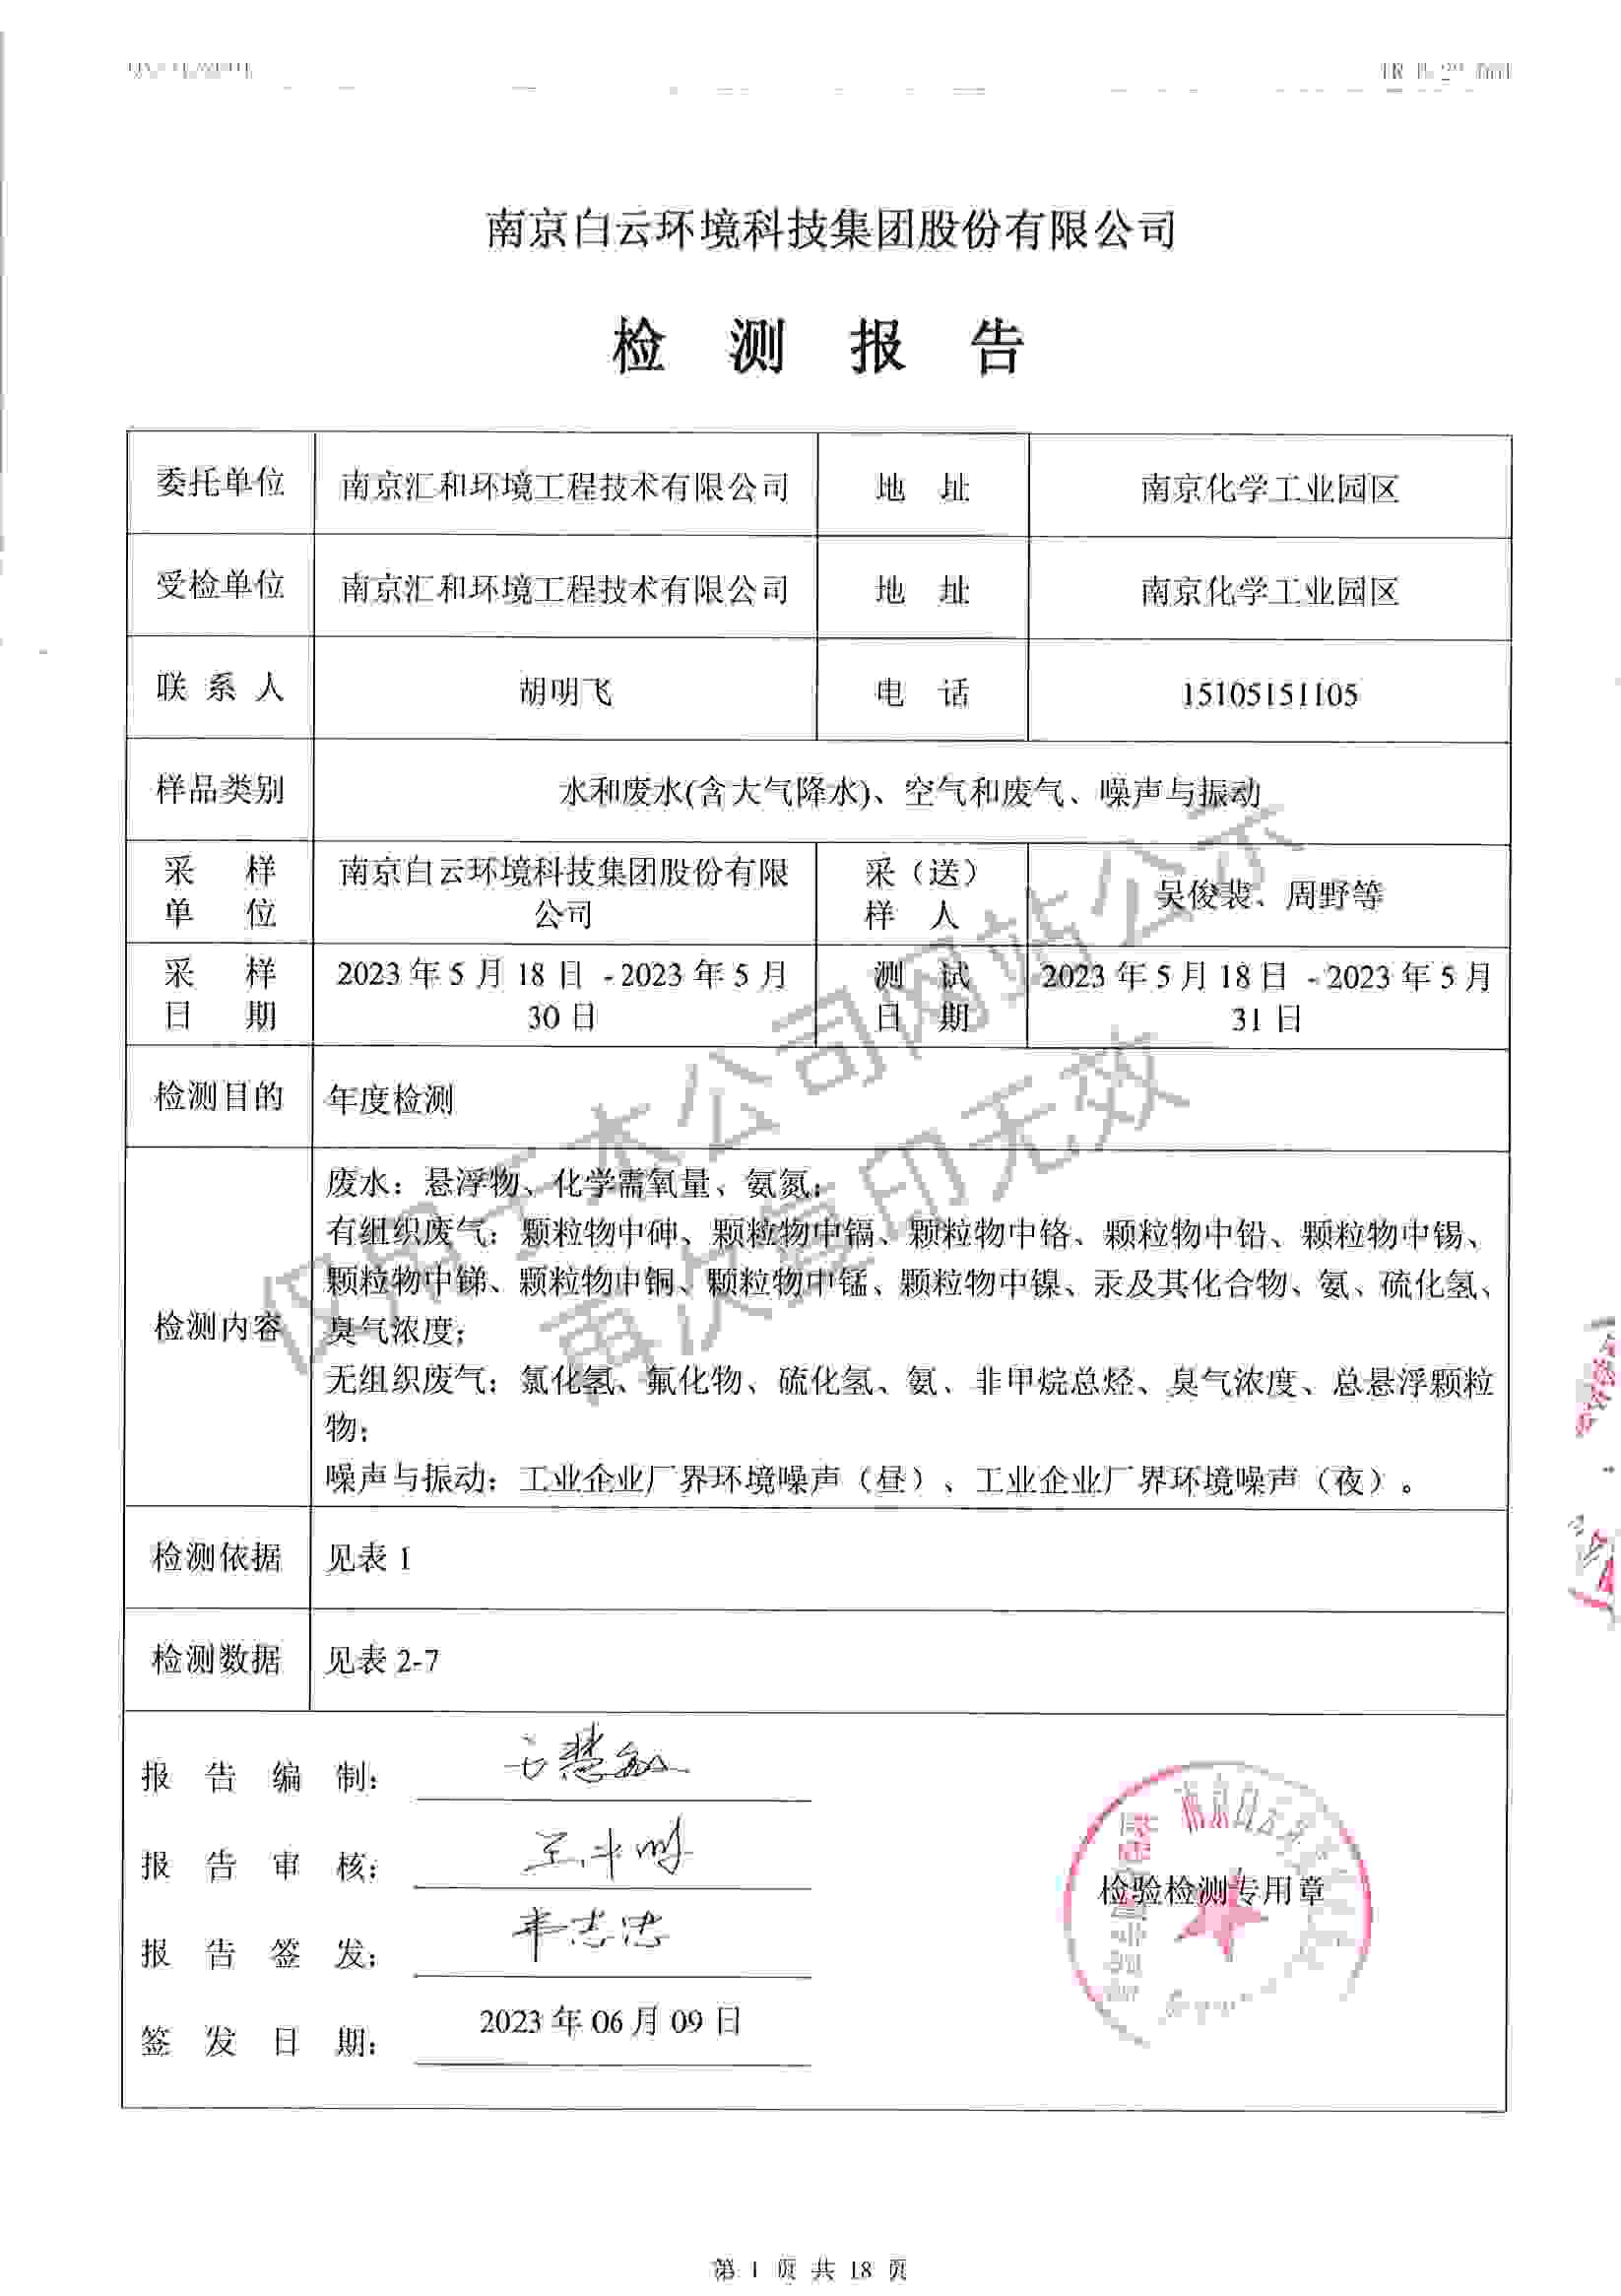 南京白云环境科技集团股份有限公司
检 测 报 告
委托单位 南京汇和环境工程技术有限公司 地 址 南京化学工业园区
受检单位 南京汇和环境工程技术有限公司 地 址 南京化学工业园区
联 系 人 胡明飞 电 话 15105151105
样品类别 水和废水(含大气降水)、空气和废气、噪声与振动
采 样 南京白云环境科技集团股份有限 采（送） 吴俊裴、周野等
单 位 公司 样 人
采 样 2023 年 5 月 18 日 - 2023 年 5 月 测 试 2023 年 5 月 18 日 - 2023 年 5 月
日 期 30 日 日 期 31 日
检测目的 年度检测
检测内容
废水：悬浮物、化学需氧量、氨氮；
有组织废气：颗粒物中砷、颗粒物中镉、颗粒物中铬、颗粒物中铅、颗粒物中锡、
颗粒物中锑、颗粒物中铜、颗粒物中锰、颗粒物中镍、汞及其化合物、氨、硫化氢、
臭气浓度；
无组织废气：氯化氢、氟化物、硫化氢、氨、非甲烷总烃、臭气浓度、总悬浮颗粒
物；
噪声与振动：工业企业厂界环境噪声（昼）、工业企业厂界环境噪声（夜）。
检测依据 见表 1
检测数据 见表 2-7
报 告 编 制：
报 告 审 核：
检验检测专用章
报 告 签 发：
签 发 日 期： 2023 年 06 月 09 日
仅用于本公司网站公示
再次复印无效
第 1 页 共 18 页